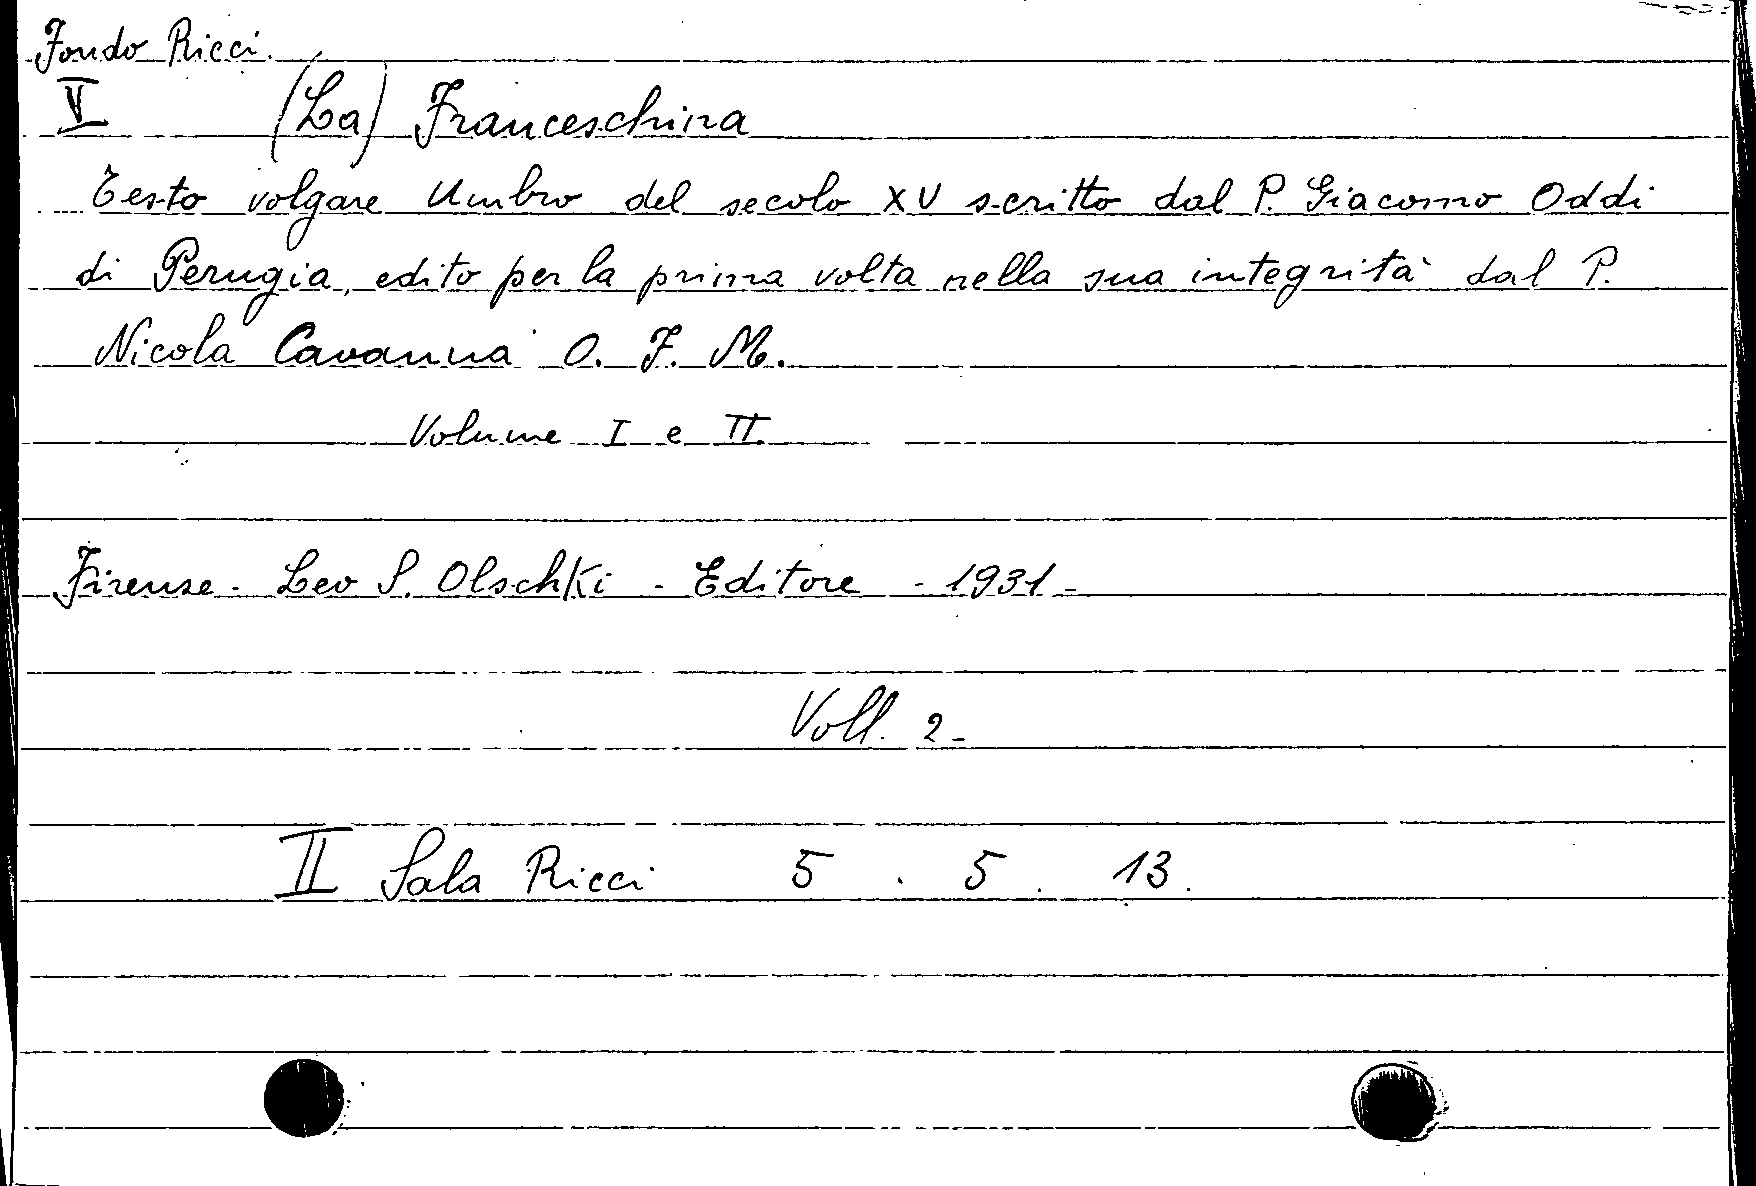 Fondo Ricci.
V (La) Franceschina
Testo volgare Umbro del secolo XV scritto dal P. Giacomo Oddi
di Perugia, edito per la prima volta nella sua integrità dal P.
Nicola Cavanna O. F. M.
Volume I e II.
Firenze - Leo S. Olschki - Editore - 1931 -
Voll. 2 -
II Sala Ricci 5 . 5 . 13.